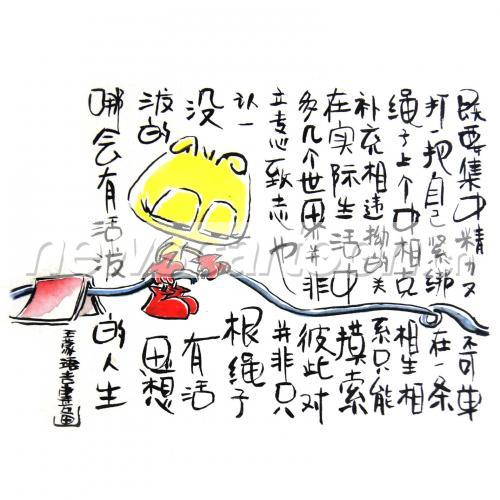 既要集中精力又不可单
打一把自己紧绑在一条
绳子上个中相克相生相
补充相违拗的关系只能
在实际生活中摸索
多几个世界并非彼此对
立专心致志也并非只
认一根绳子
没有活
泼的思想
哪会有活泼的人生
王蒙语